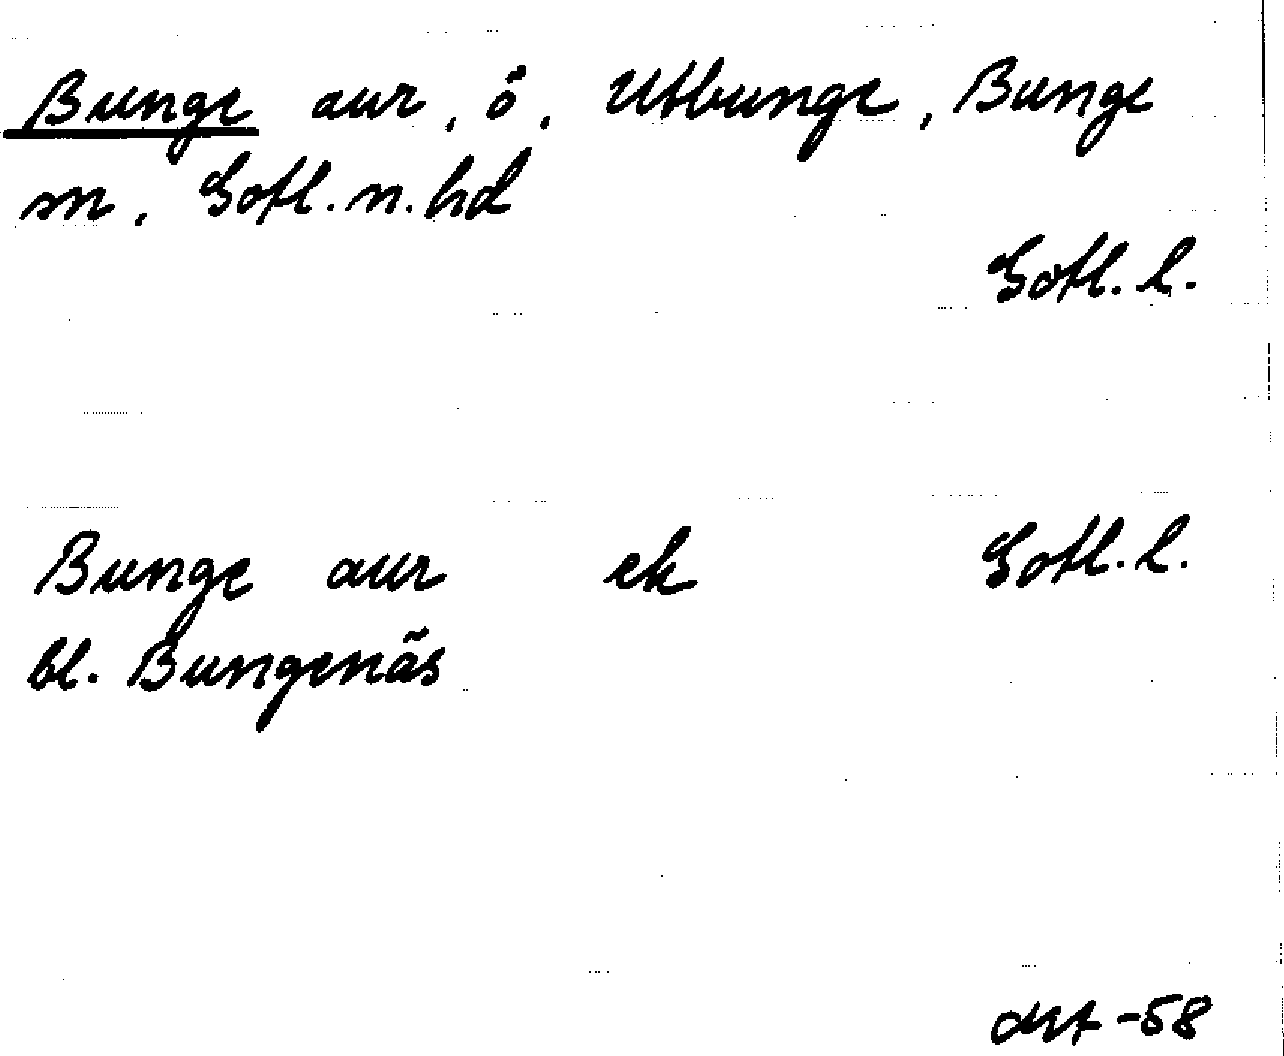 Bunge aur, ö, Utbunge, Bunge
m, Gotl. n. hd
Gotl. l.
Bunge aur ek Gotl. l.
bl. Bungenäs
-58